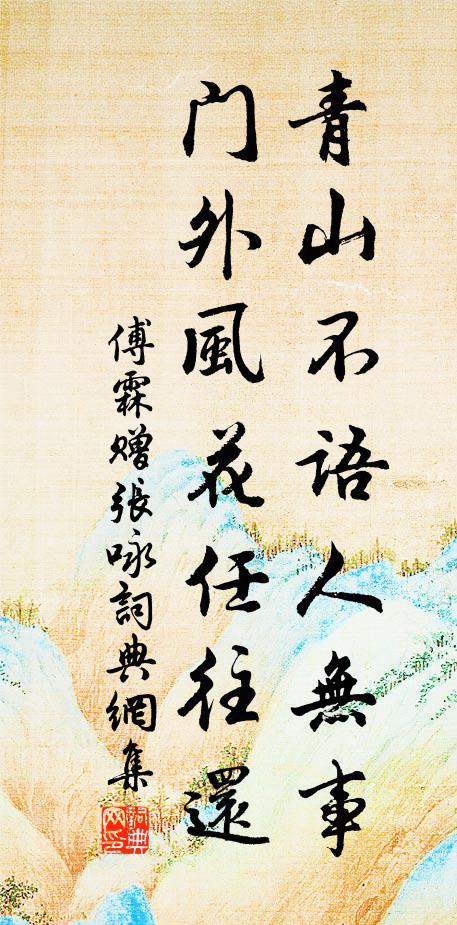 青山不语人無事
門外風花任往還
傅霖赠張咏詞典網集
詞典網印